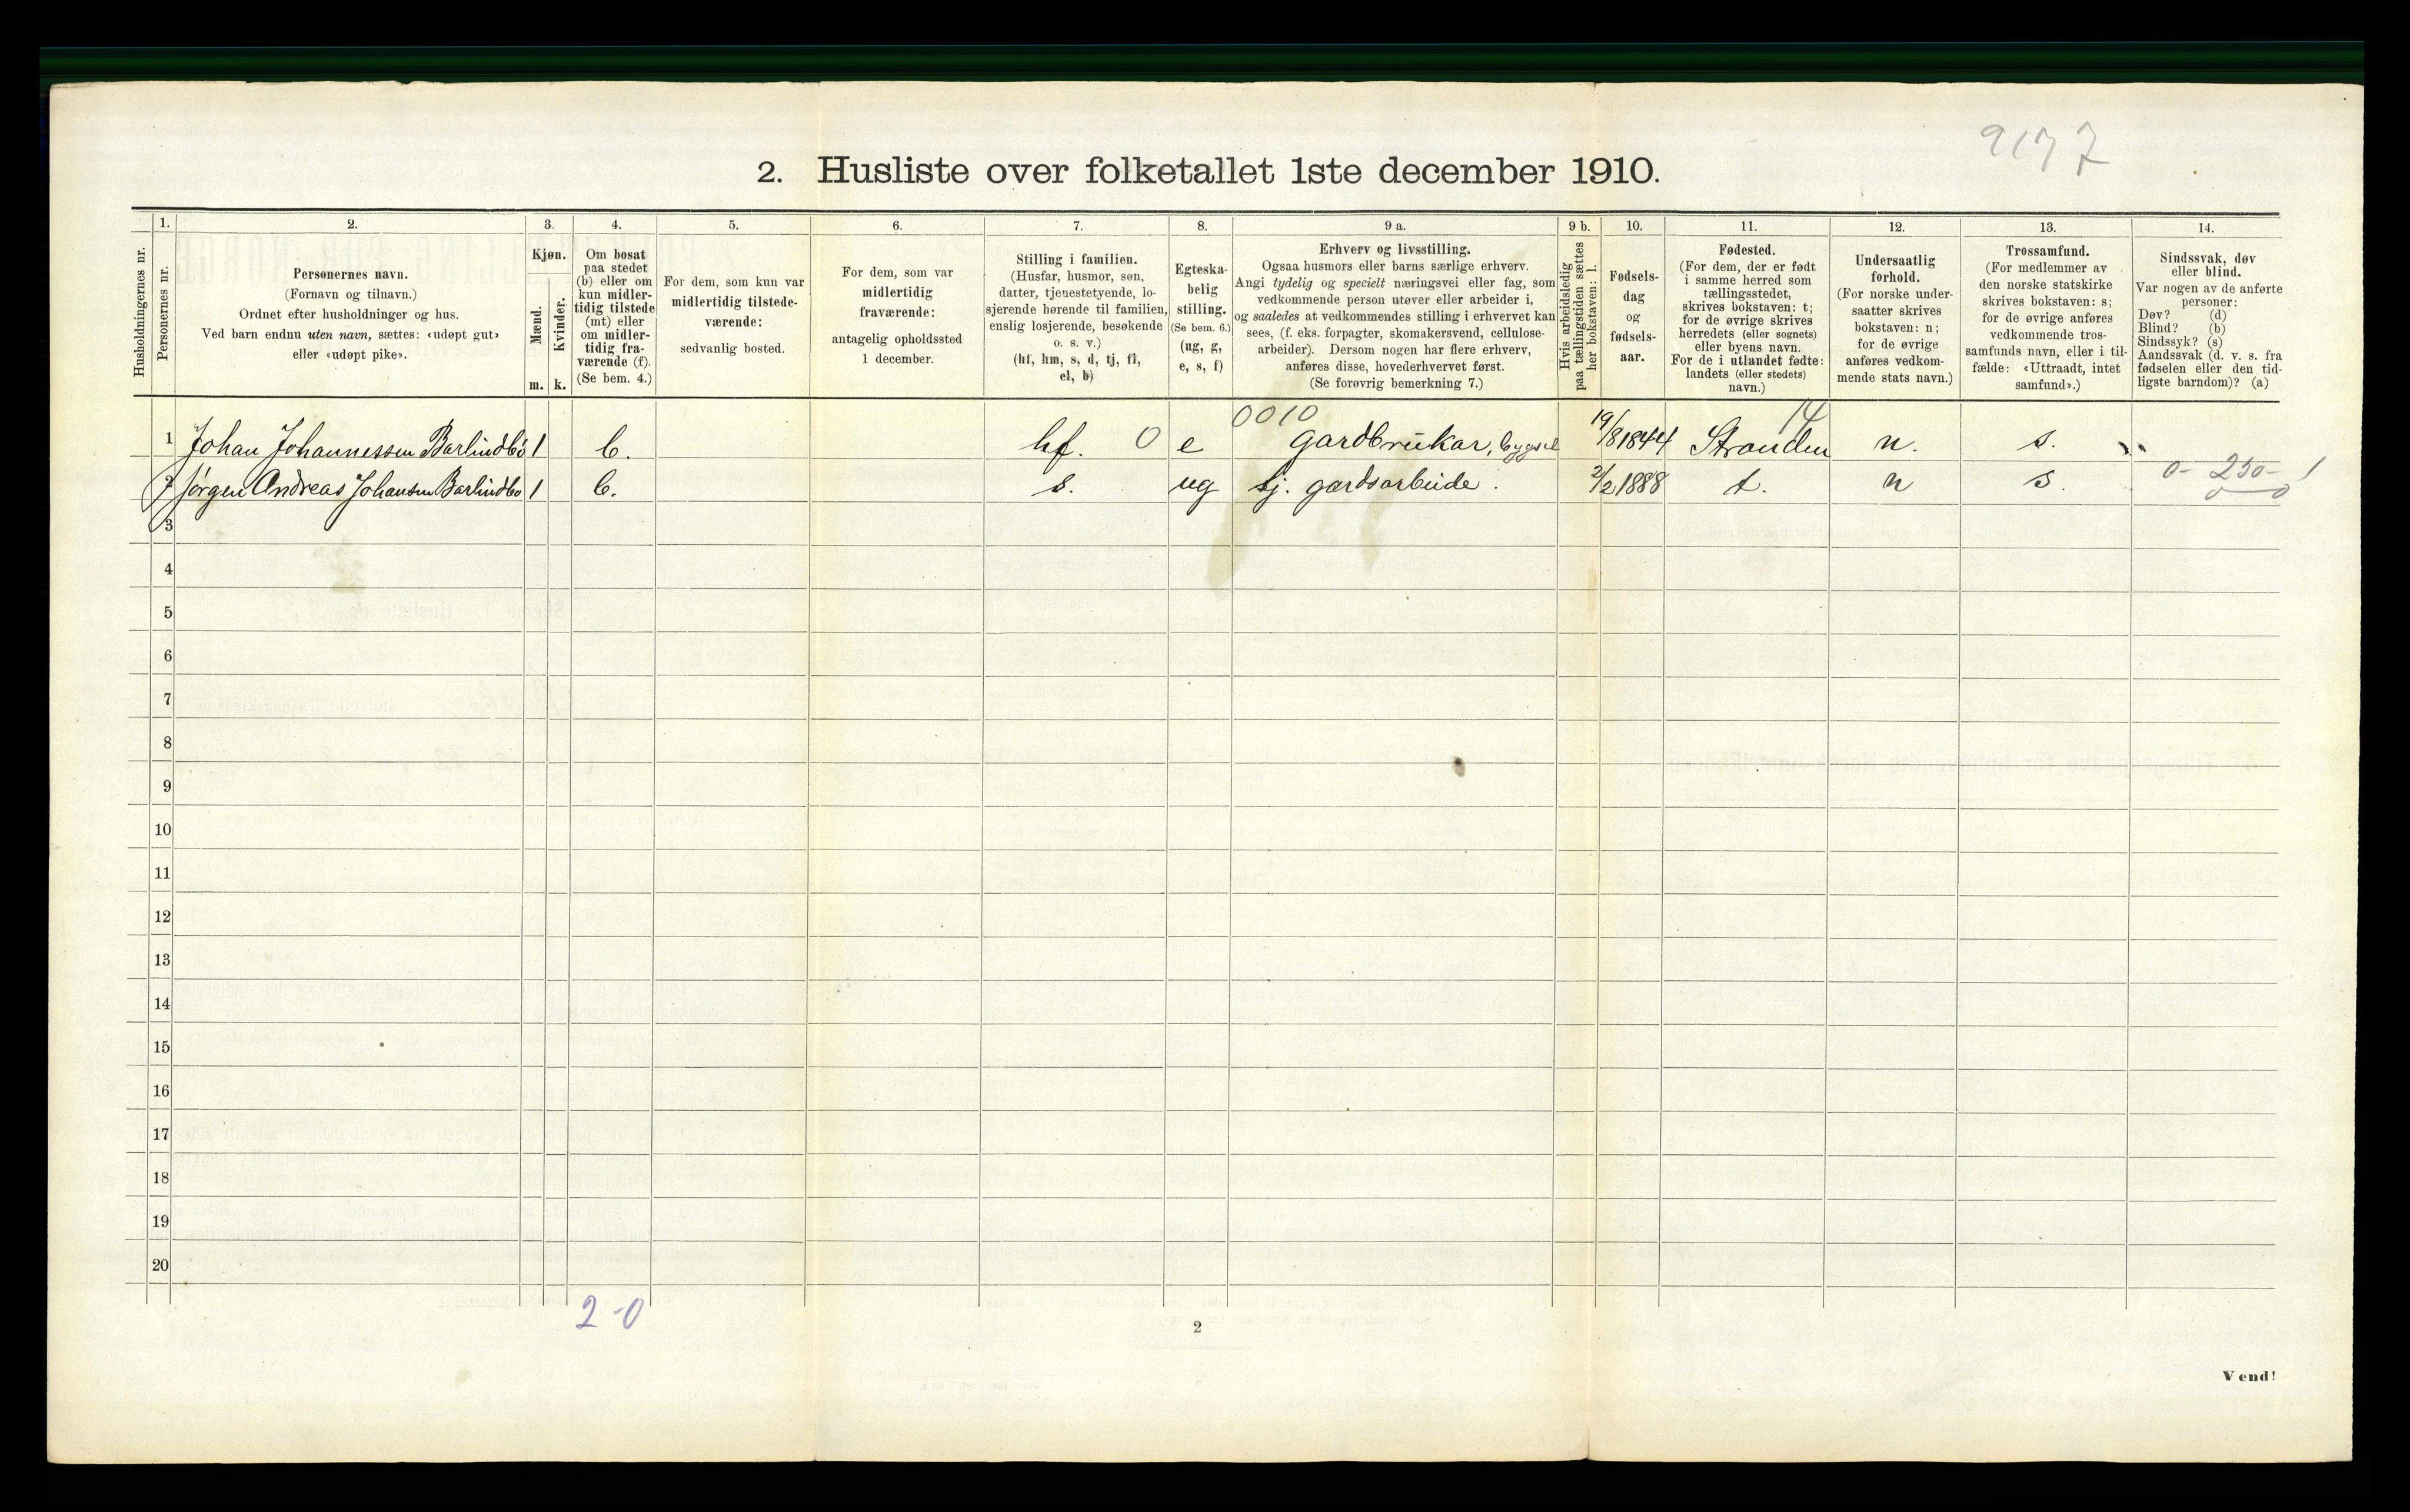 9177
2. Husliste over folketallet 1ste december 1910.
Husholdningernes nr.
1.
Personernes nr.
2.
Personernes navn.
(Fornavn og tilnavn.)
Ordnet efter husholdninger og hus.
Ved barn endnu uten navn, sættes: «udøpt gut»
eller «udøpt pike».
3.
Kjøn.
Mænd.
m.
Kvinder.
k.
4.
Om bosat
paa stedet
(b) eller om
kun midler-
tidig tilstede
(mt) eller
om midler-
tidig fra-
værende (f).
(Se bem. 4.)
5.
For dem, som kun var
midlertidig tilstede-
værende:
sedvanlig bosted.
6.
For dem, som var
midlertidig
fraværende:
antagelig opholdssted
1 december.
7.
Stilling i familien.
(Husfar, husmor, søn,
datter, tjenestetyende, lo-
sjerende hørende til familien,
enslig losjerende, besøkende
o. s. v.)
(hf, hm, s, d, tj, fl,
el, b)
8.
Egteska-
belig
stilling.
(Se bem. 6.)
(ug, g,
e, s, f)
9 a.
Erhverv og livsstilling.
Ogsaa husmors eller barns særlige erhverv.
Angi tydelig og specielt næringsvei eller fag, som
vedkommende person utøver eller arbeider i,
og saaledes at vedkommendes stilling i erhvervet kan
sees, (f. eks. forpagter, skomakersvend, cellulose-
arbeider). Dersom nogen har flere erhverv,
anføres disse, hovederhvervet først.
(Se forøvrig bemerkning 7.)
9 b.
Hvis arbeidsledig
paa tællingstiden sættes
her bokstaven: l.
10.
Fødsels-
dag
og
fødsels-
aar.
11.
Fødested.
(For dem, der er født
i samme herred som
tællingsstedet,
skrives bokstaven: t;
for de øvrige skrives
herredets (eller sognets)
eller byens navn.
For de i utlandet fødte:
landets (eller stedets)
navn.)
12.
Undersaatlig
forhold.
(For norske under-
saatter skrives
bokstaven: n;
for de øvrige
anføres vedkom-
mende stats navn.)
13.
Trossamfund.
(For medlemmer av
den norske statskirke
skrives bokstaven: s;
for de øvrige anføres
vedkommende tros-
samfunds navn, eller i til-
fælde: «Uttraadt, intet
samfund».)
14.
Sindssvak, døv
eller blind.
Var nogen av de anførte
personer:
Døv? (d)
Blind? (b)
Sindssyk? (s)
Aandssvak (d. v. s. fra
fødselen eller den tid-
ligste barndom)? (a)
0010 14
1 Johan Johannessen Barlindbø 1 b. hf. 0 e gardbrukar, bygsel 19/8 1844 Stranden n. s.
2 Jørgen Andreas Johansen Barlindbø 1 b. s. ug tj. gardsarbeide. 2/2 1888 t. n s. 0- 250- 1
0 0
3
4
5
6
7
8
9
10
11
12
13
14
15
16
17
18
19
20
2-0
2
Vend!